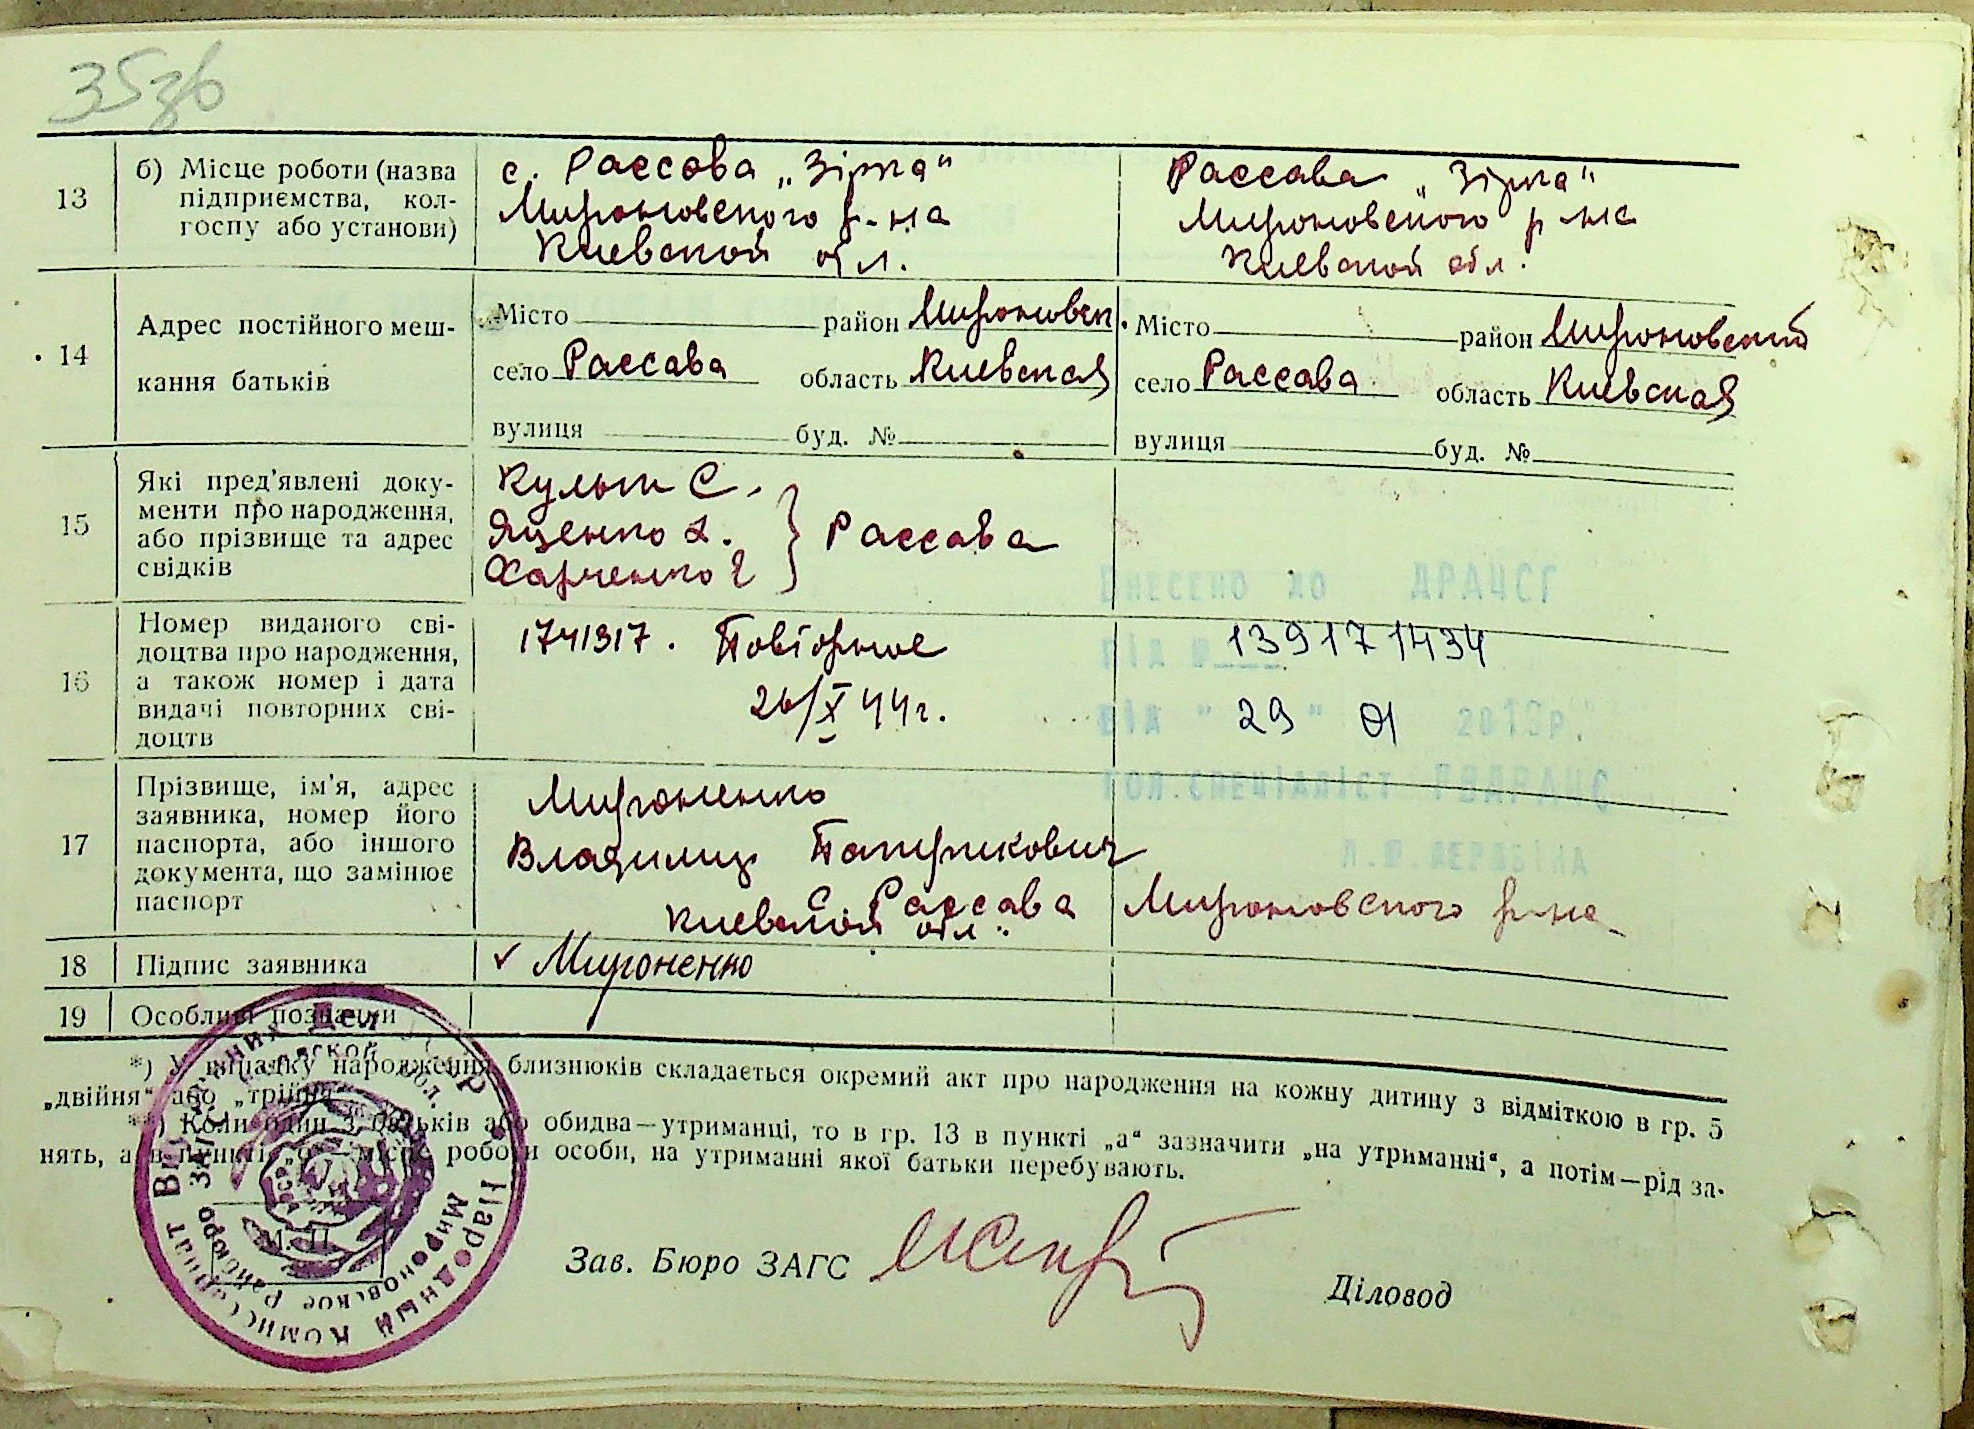 35зв
13
б) Місце роботи (назва
підприємства, кол-
госпу або установи)
с. Рассава „Зірка“
Мироновского р-на
Киевской обл.
Рассава „Зірка“
Мироновского р-на
Киевской обл.
14
Адрес постійного меш-
кання батьків
Місто район Мироновск.
село Рассава область Киевская
вулиця буд. №
Місто район Мироновский
село Рассава область Киевская
вулиця буд. №
15
Які пред'явлені доку-
менти про народження,
або прізвище та адрес
свідків
С.
Яценко
Харченко
} Рассава
16
Номер виданого сві-
доцтва про народження,
а також номер і дата
видачі повторних сві-
доцтв
1741317. Повторное
26/X 44г.
Внесено до ДРАЦСГ
під № 139171434
від "29" 01 2013р.
Гол.спеціаліст
17
Прізвище, ім'я, адрес
заявника, номер його
паспорта, або іншого
документа, що замінює
паспорт
Мироненко
Владимир
с. Рассава Мироновского р-на
Киевской обл.
18
Підпис заявника
✓ Мироненко
19
Особливі позначки
*) У випадку народження близнюків складається окремий акт про народження на кожну дитину з відміткою в гр. 5
„двійня“ або „трійня“
**) Коли один з батьків або обидва—утриманці, то в гр. 13 в пункті „а“ зазначити „на утриманні“, а потім—рід за-
нять, а в пункті „б“—місце роботи особи, на утриманні якої батьки перебувають.
М. П.
Зав. Бюро ЗАГС
Діловод
Народный Комиссариат Внутренних Дел УССР
Мироновское Райбюро ЗАГС Киевской обл.